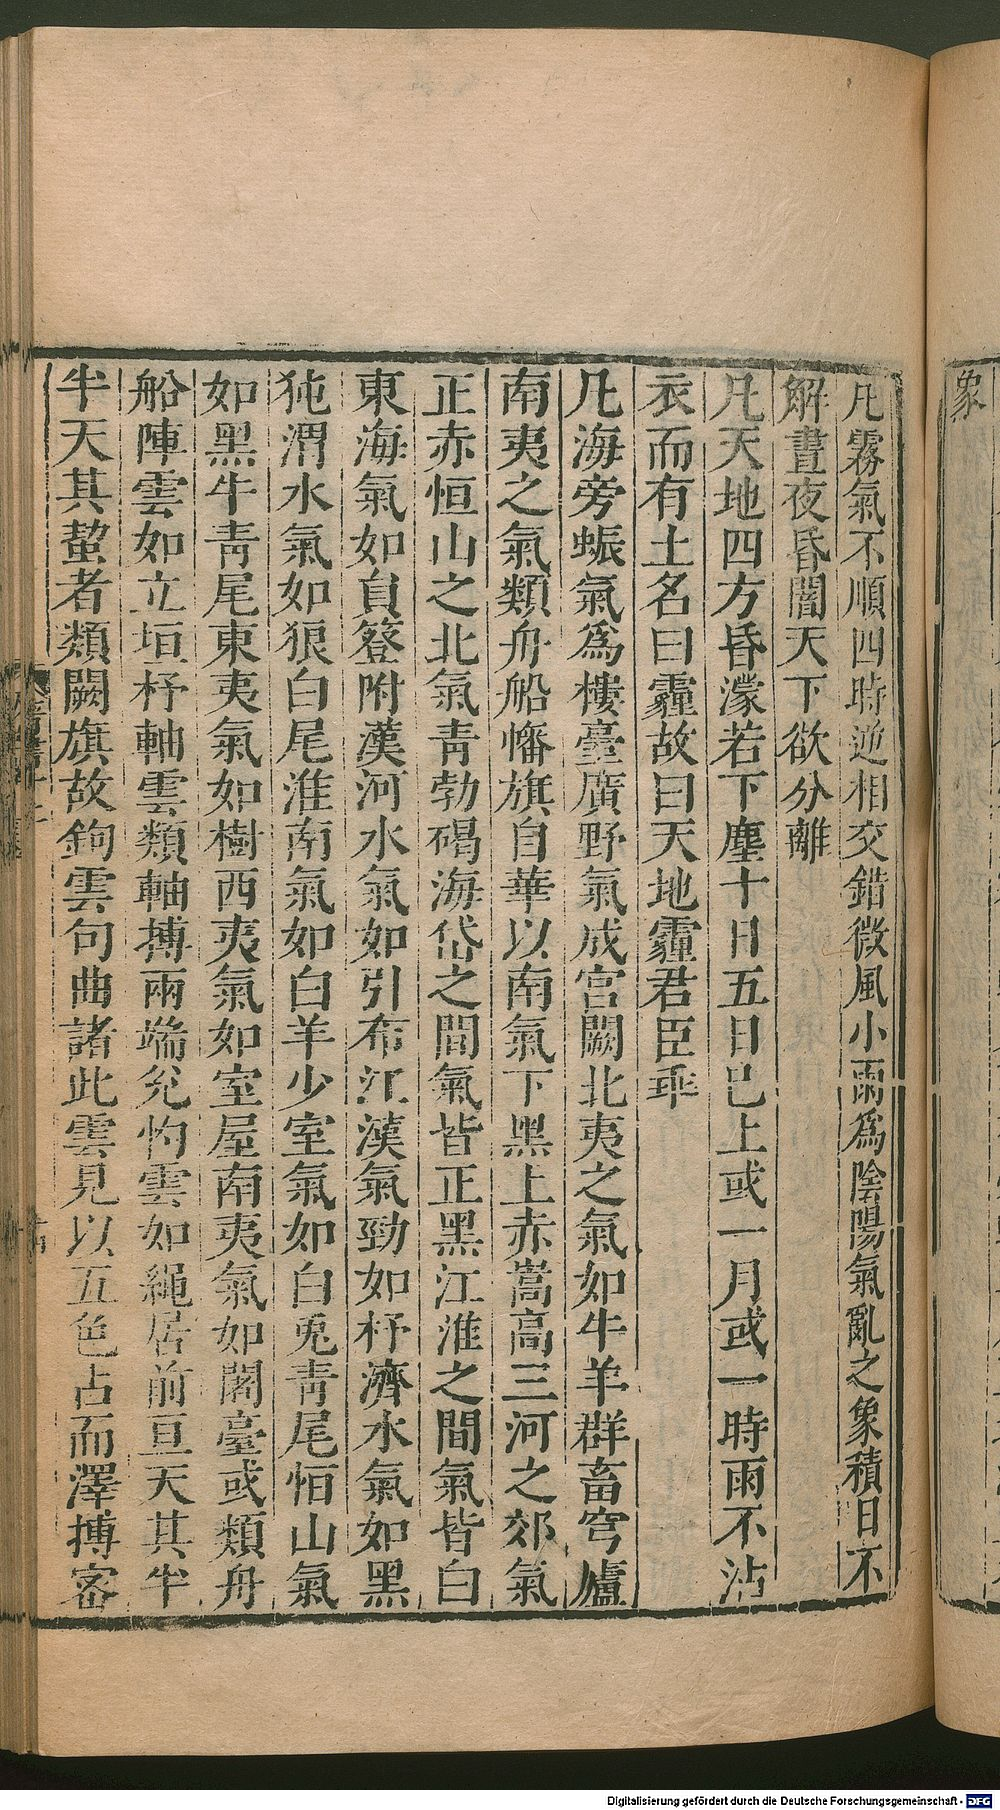 象
凡霧氣不順四時逆相交錯微風小雨爲陰陽氣亂之象積日不
解晝夜昏闇天下欲分離
凡天地四方昏濛若下塵十日五日已上或一月或一時雨不沾
衣而有土名曰霾故曰天地霾君臣乖
凡海旁蜃氣爲樓臺廣野氣成宮闕北夷之氣如牛羊群畜穹廬
南夷之氣類舟船幡旗自華以南氣下黑上赤嵩高三河之郊氣
正赤恒山之北氣青勃碣海岱之間氣皆正黑江淮之間氣皆白
東海氣如員簦附漢河水氣如引布江漢氣勁如杼濟水氣如黑
㹠渭水氣如狼白尾淮南氣如白羊少室氣如白兎青尾恒山氣
如黑牛青尾東夷氣如樹西夷氣如室屋南夷氣如閣臺或類舟
船陣雲如立垣杼軸雲類軸摶兩端兊杓雲如繩居前亘天其半
半天其蝥者類闕旗故鉤雲句曲諸此雲見以五色占而澤摶密
Digitalisierung gefördert durch die Deutsche Forschungsgemeinschaft - DFG